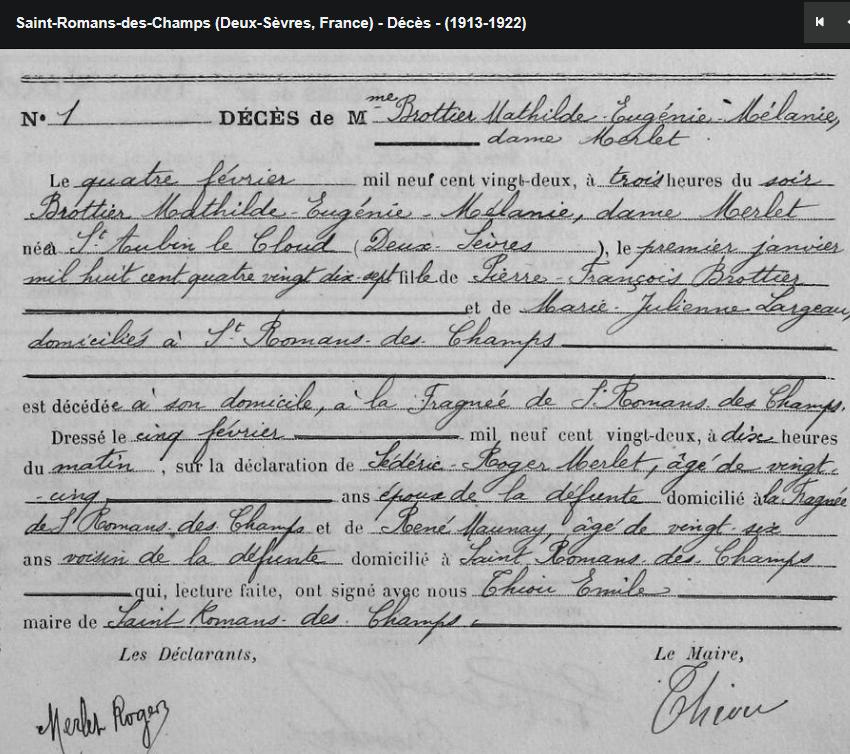 Saint-Romans-des-Champs (Deux-Sèvres, France) - Décès - (1913-1922)
N° 1 DÉCÈS de Mme Brottier Mathilde-Eugénie-Mélanie,
dame Merlet
Le quatre février mil neuf cent vingt-deux, à trois heures du soir
Brottier Mathilde-Eugénie-Mélanie, dame Merlet
née à St Aubin le Cloud (Deux-Sèvres), le premier janvier
mil huit cent quatre vingt dix-sept fille de Pierre-François Brottier
et de Marie-Julienne Largeau,
domiciliés à St Romans-des-Champs
est décédée à son domicile, à la Fragnée de St Romans des Champs.
Dressé le cinq février mil neuf cent vingt-deux, à dix heures
du matin, sur la déclaration de Fédéric-Roger Merlet, âgé de vingt-
-cinq ans époux de la défunte domicilié à la Fragnée
de St Romans des Champs et de René Maunay, âgé de vingt-six
ans voisin de la défunte domicilié à Saint Romans des Champs
qui, lecture faite, ont signé avec nous Thiou Emile
maire de Saint Romans-des-Champs.
Les Déclarants, Le Maire,
Merlet Roger Thiou